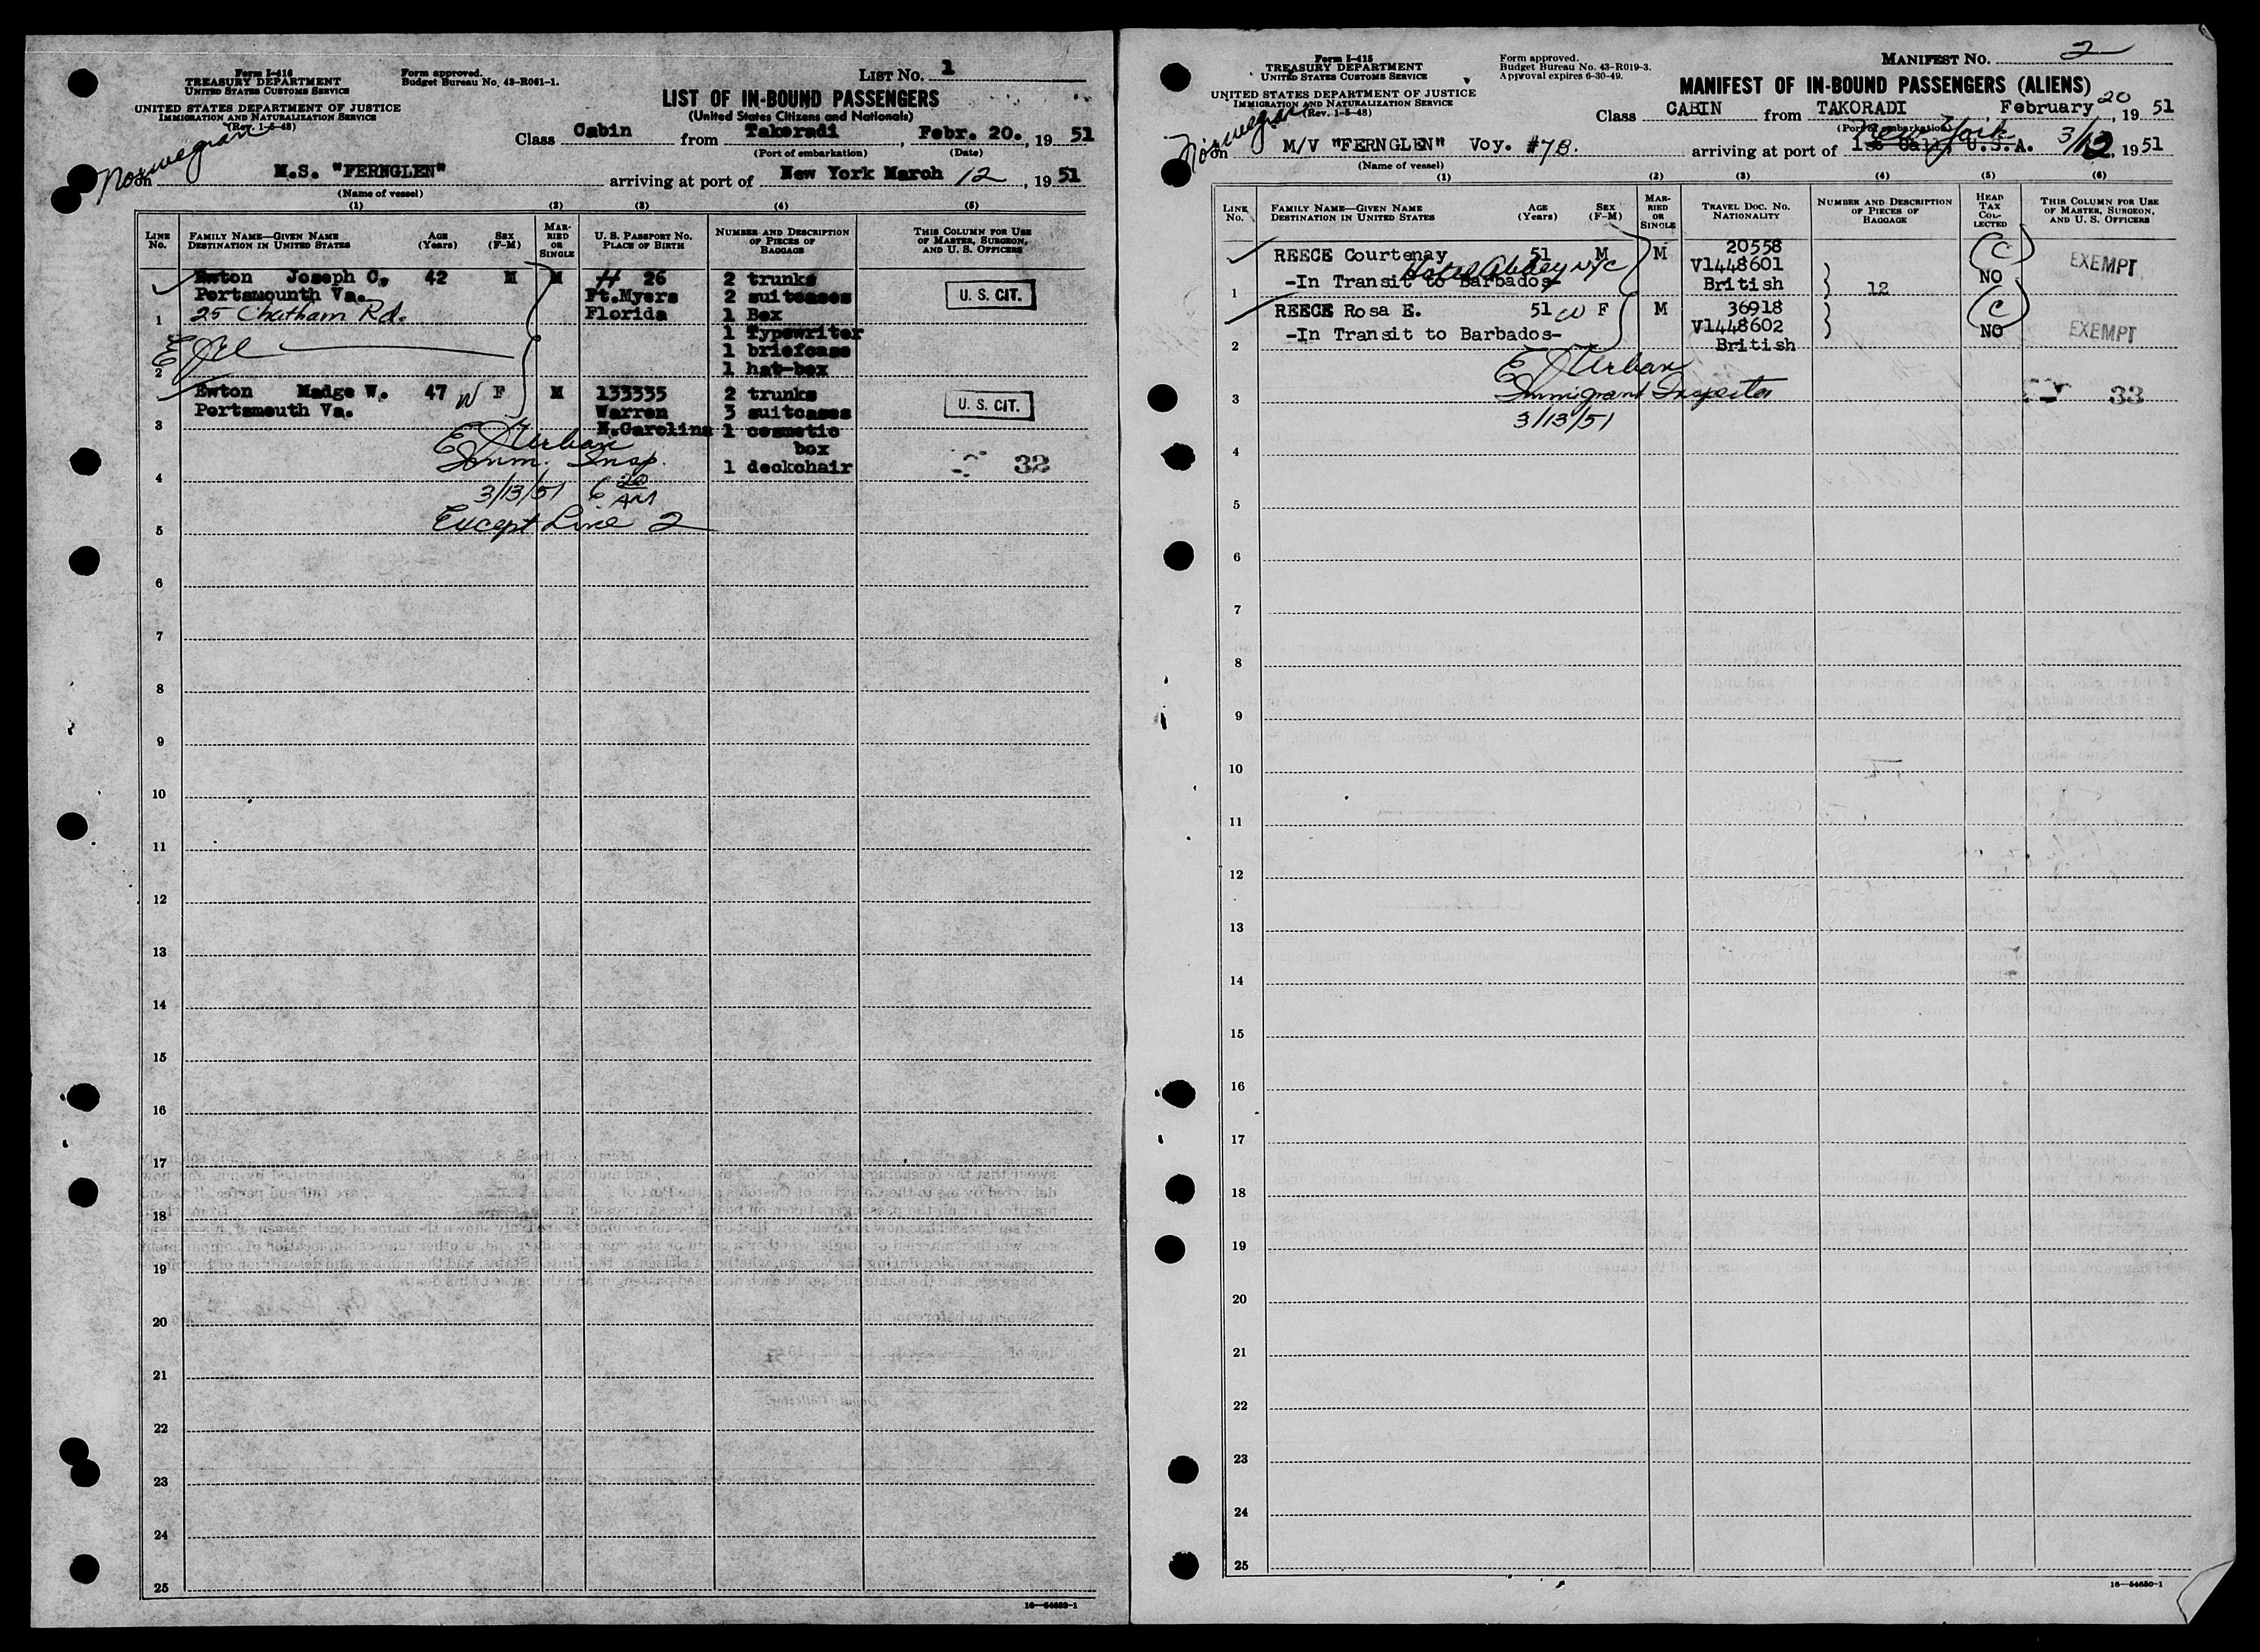 Form I-416
TREASURY DEPARTMENT
UNITED STATES CUSTOMS SERVICE
Form approved.
Budget Bureau No. 43-R061-1.
LIST NO. 1
UNITED STATES DEPARTMENT OF JUSTICE
IMMIGRATION AND NATURALIZATION SERVICE
(Rev. 1-5-48)
LIST OF IN-BOUND PASSENGERS
(United States Citizens and Nationals)
Norwegian
Class Cabin from Takoradi, Febr. 20., 19 51
(Port of embarkation) (Date)
on M.S. "FERNGLEN" arriving at port of New York March 12, 19 51
(Name of vessel)
(1) (2) (3) (4) (5)
LINE NO.
FAMILY NAME—GIVEN NAME
DESTINATION IN UNITED STATES
AGE (Years)
SEX (F-M)
MARRIED OR SINGLE
U. S. PASSPORT NO.
PLACE OF BIRTH
NUMBER AND DESCRIPTION OF PIECES OF BAGGAGE
THIS COLUMN FOR USE OF MASTER, SURGEON, AND U. S. OFFICERS
Ewton Joseph C. 42 M M # 26 2 trunks
Portsmounth Va. Ft.Myers 2 suitcases U. S. CIT.
1 25 Chatham Rd. Florida 1 Box
1 Typewriter
1 briefcase
2 1 hat-box
Ewton Madge W. 47 W F M 133335 2 trunks
Portsmouth Va. Warren 3 suitcases U. S. CIT.
3 N.Carolina 1 cosmetic
E J Urban box
Imm. Insp. 1 deckchair 32
4
3/13/51 6 20 AM
Except Line 2
5
6
7
8
9
10
11
12
13
14
15
16
17
18
19
20
21
22
23
24
25
Form I-415
TREASURY DEPARTMENT
UNITED STATES CUSTOMS SERVICE
Form approved.
Budget Bureau No. 43-R019-3.
Approval expires 6-30-49.
MANIFEST NO. 2
UNITED STATES DEPARTMENT OF JUSTICE
IMMIGRATION AND NATURALIZATION SERVICE
(Rev. 1-5-48)
MANIFEST OF IN-BOUND PASSENGERS (ALIENS)
Norwegian
Class CABIN from TAKORADI, February 20, 19 51
(Port of embarkation)
New York
on M/V "FERNGLEN" Voy. #7B. arriving at port of U.S.A. 3/12, 19 51
(Name of vessel)
(1) (2) (3) (4) (5) (6)
LINE NO.
FAMILY NAME—GIVEN NAME
DESTINATION IN UNITED STATES
AGE (Years)
SEX (F-M)
MARRIED OR SINGLE
TRAVEL DOC. NO.
NATIONALITY
NUMBER AND DESCRIPTION OF PIECES OF BAGGAGE
HEAD TAX COLLECTED
THIS COLUMN FOR USE OF MASTER, SURGEON, AND U. S. OFFICERS
REECE Courtenay 51 M M 20558 C
Hotel Abbey NYC V1448601 EXEMPT
1 -In Transit to Barbados- British 12 NO
REECE Rosa E. 51 W F M 36918 C
-In Transit to Barbados- V1448602 NO EXEMPT
2 British
E J Urban
3 Immigrant Inspector 33
3/13/51
4
5
6
7
8
9
10
11
12
13
14
15
16
17
18
19
20
21
22
23
24
25